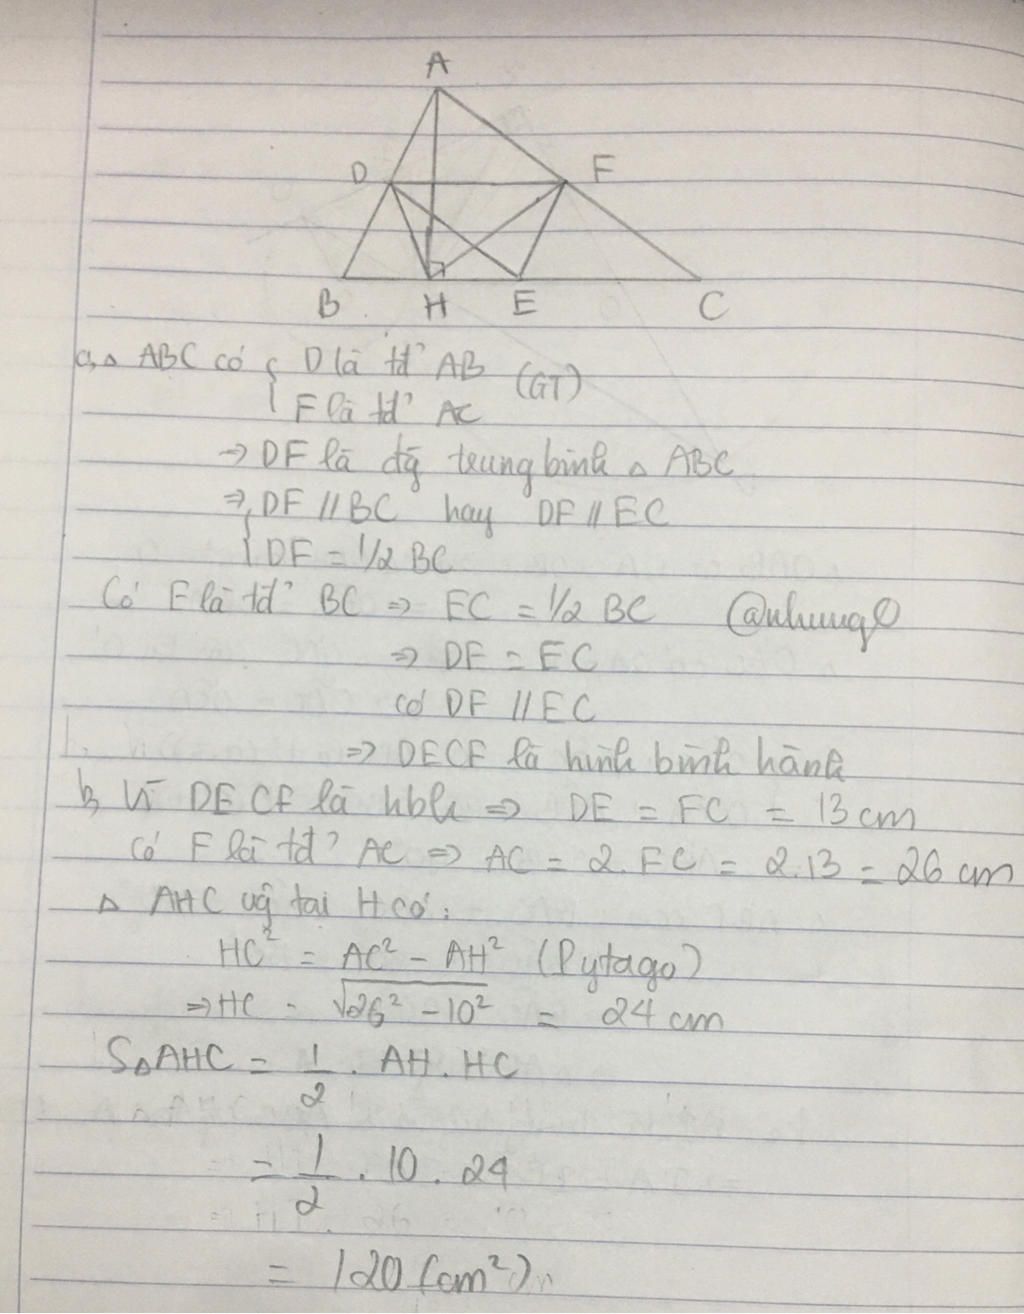 A
D
F
B
H
E
C
a, △ ABC có { D là tđ' AB (GT)
F là tđ' AC
=> DF là đg̃ trung bình △ ABC
=> { DF // BC hay DF // EC
DF = 1/2 BC
Có E là tđ' BC => EC = 1/2 BC @nhung0
=> DF = EC
có DF // EC
=> DECF là hình bình hành
b, Vì DECF là hbh => DE = FC = 13 cm
Có F là tđ' AC => AC = 2. FC = 2.13 = 26 cm
△ AHC vg̃ tại H có:
HC² = AC² - AH² (Pytago)
=> HC = √26² - 10² = 24 cm
S△AHC = 1/2 . AH . HC
= 1/2 . 10 . 24
= 120 (cm²)